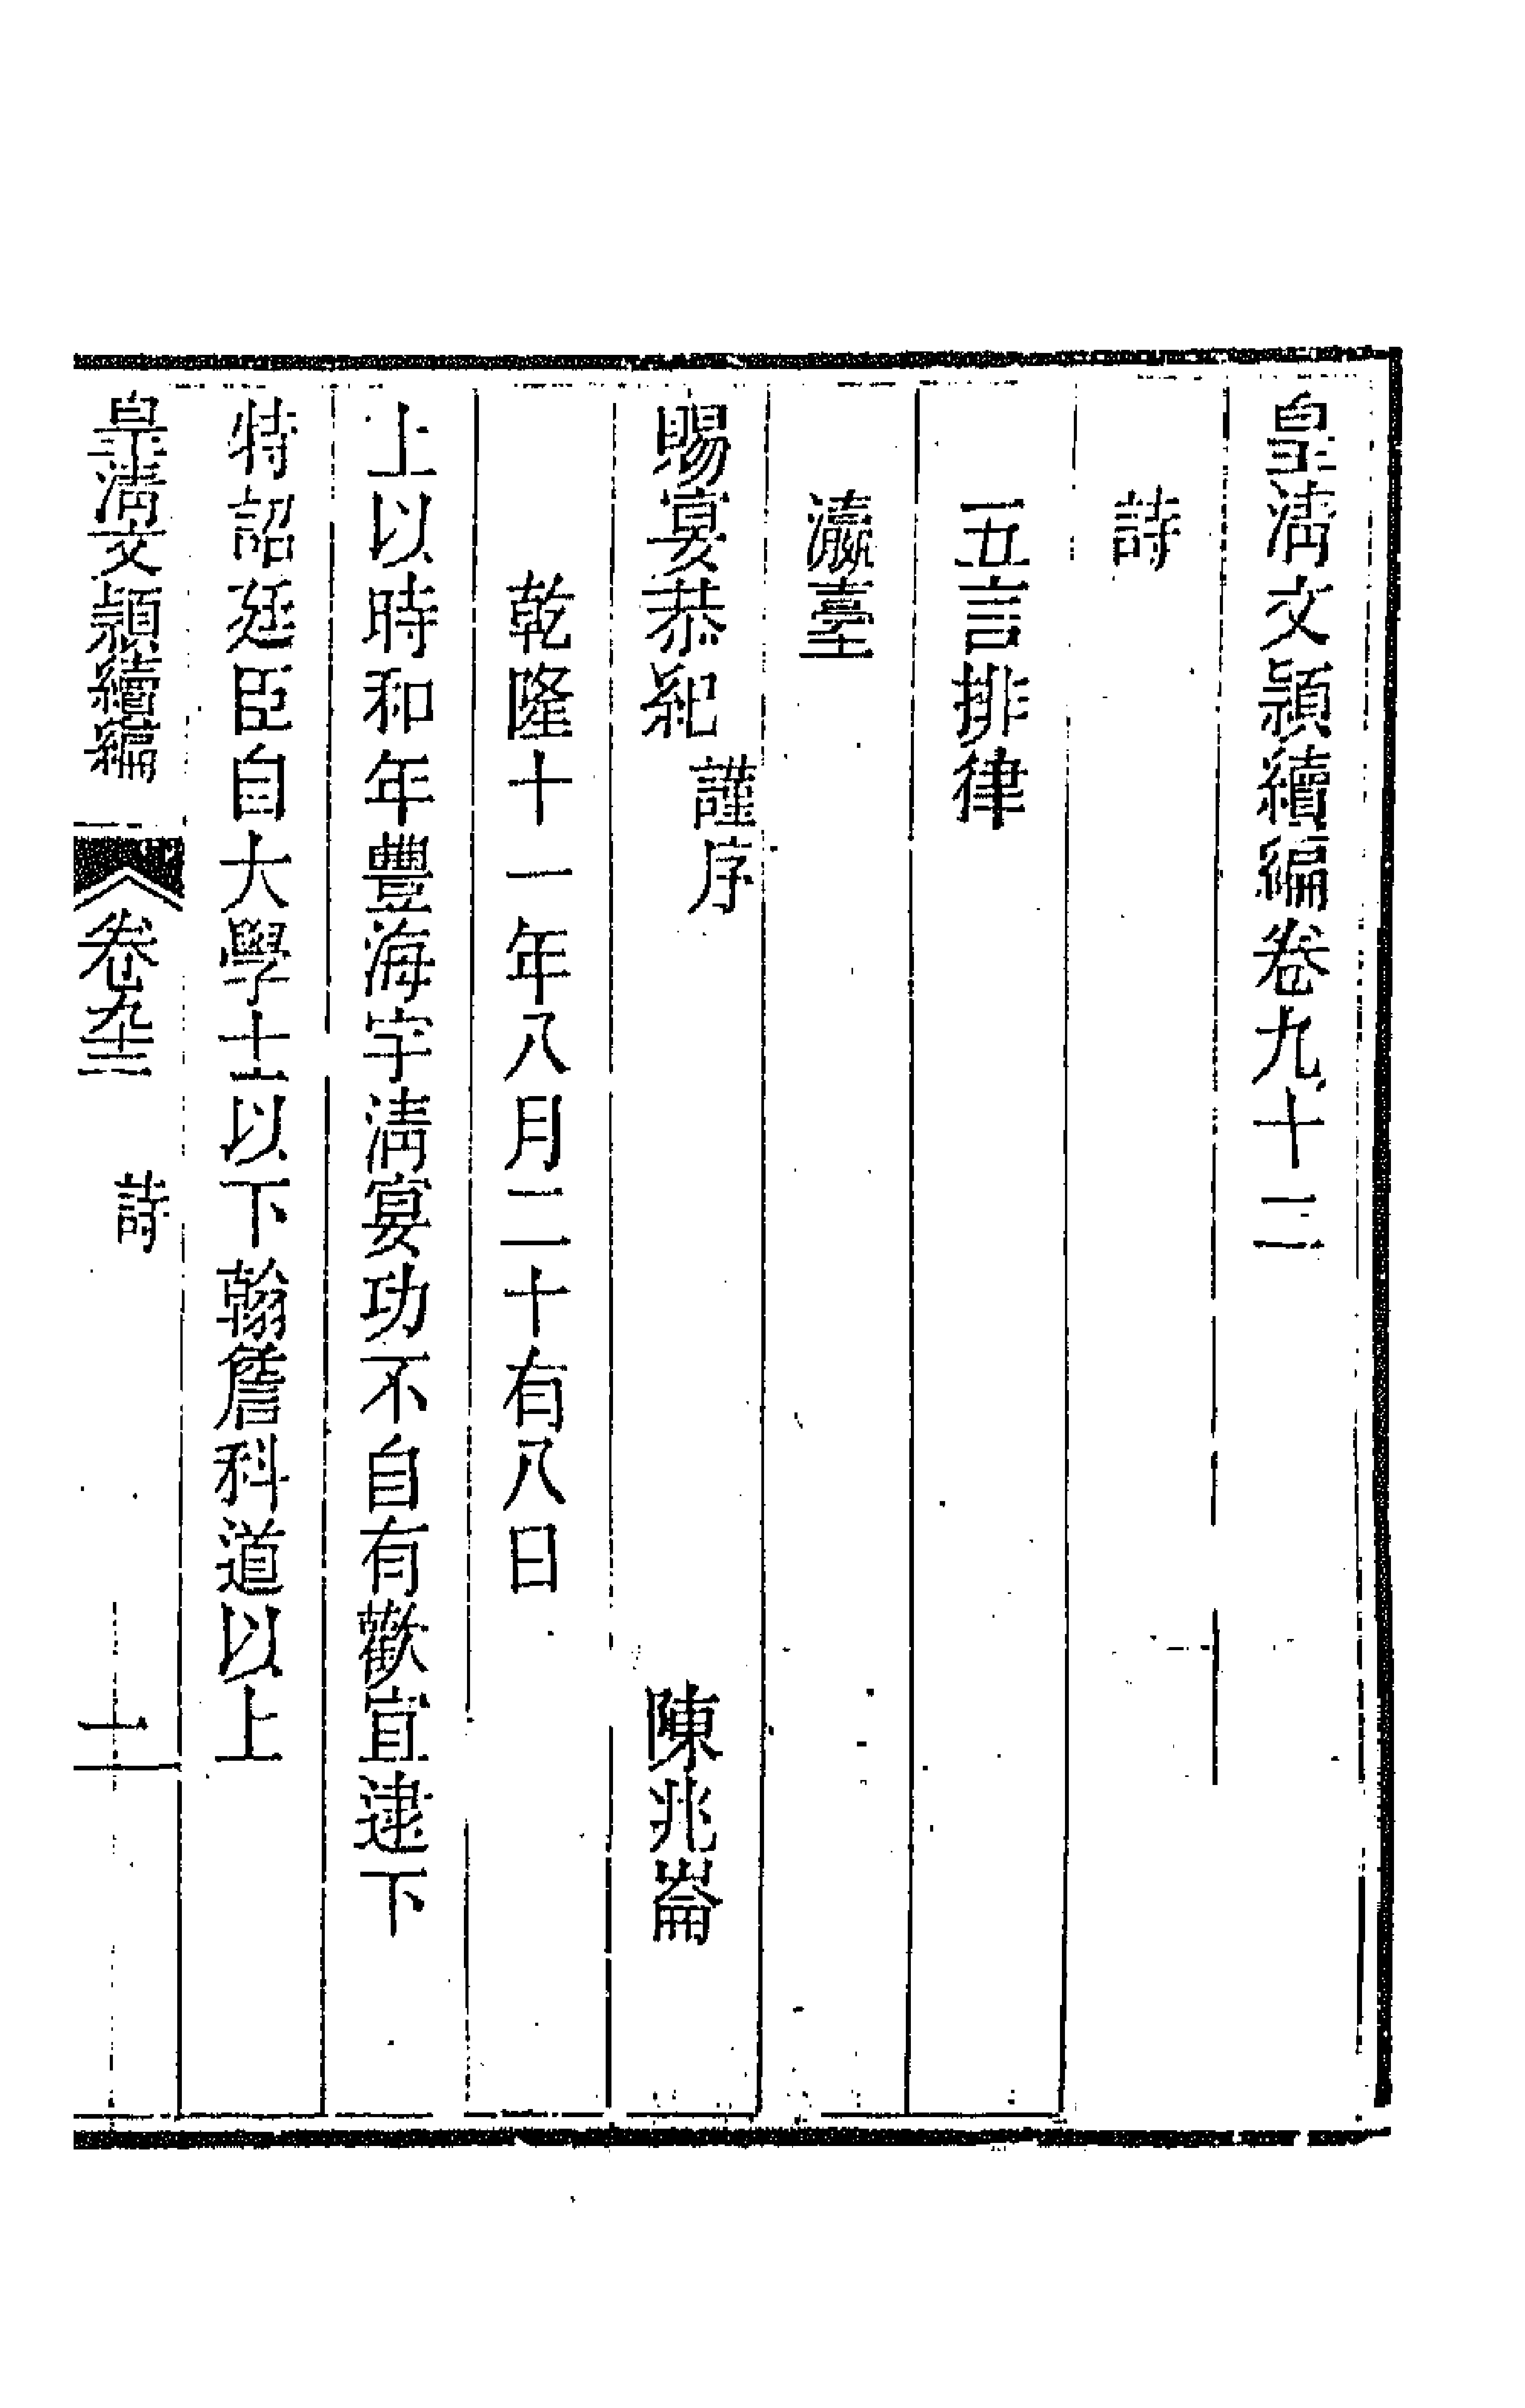 皇清文穎續編卷九十二
詩
五言排律
瀛臺
賜宴恭紀 謹序 陳兆崙
乾隆十一年八月二十有八日
上以時和年豐海宇清宴功不自有歡宜逮下
特詔廷臣自大學士以下翰詹科道以上
皇清文穎續編 卷九十二 詩 一